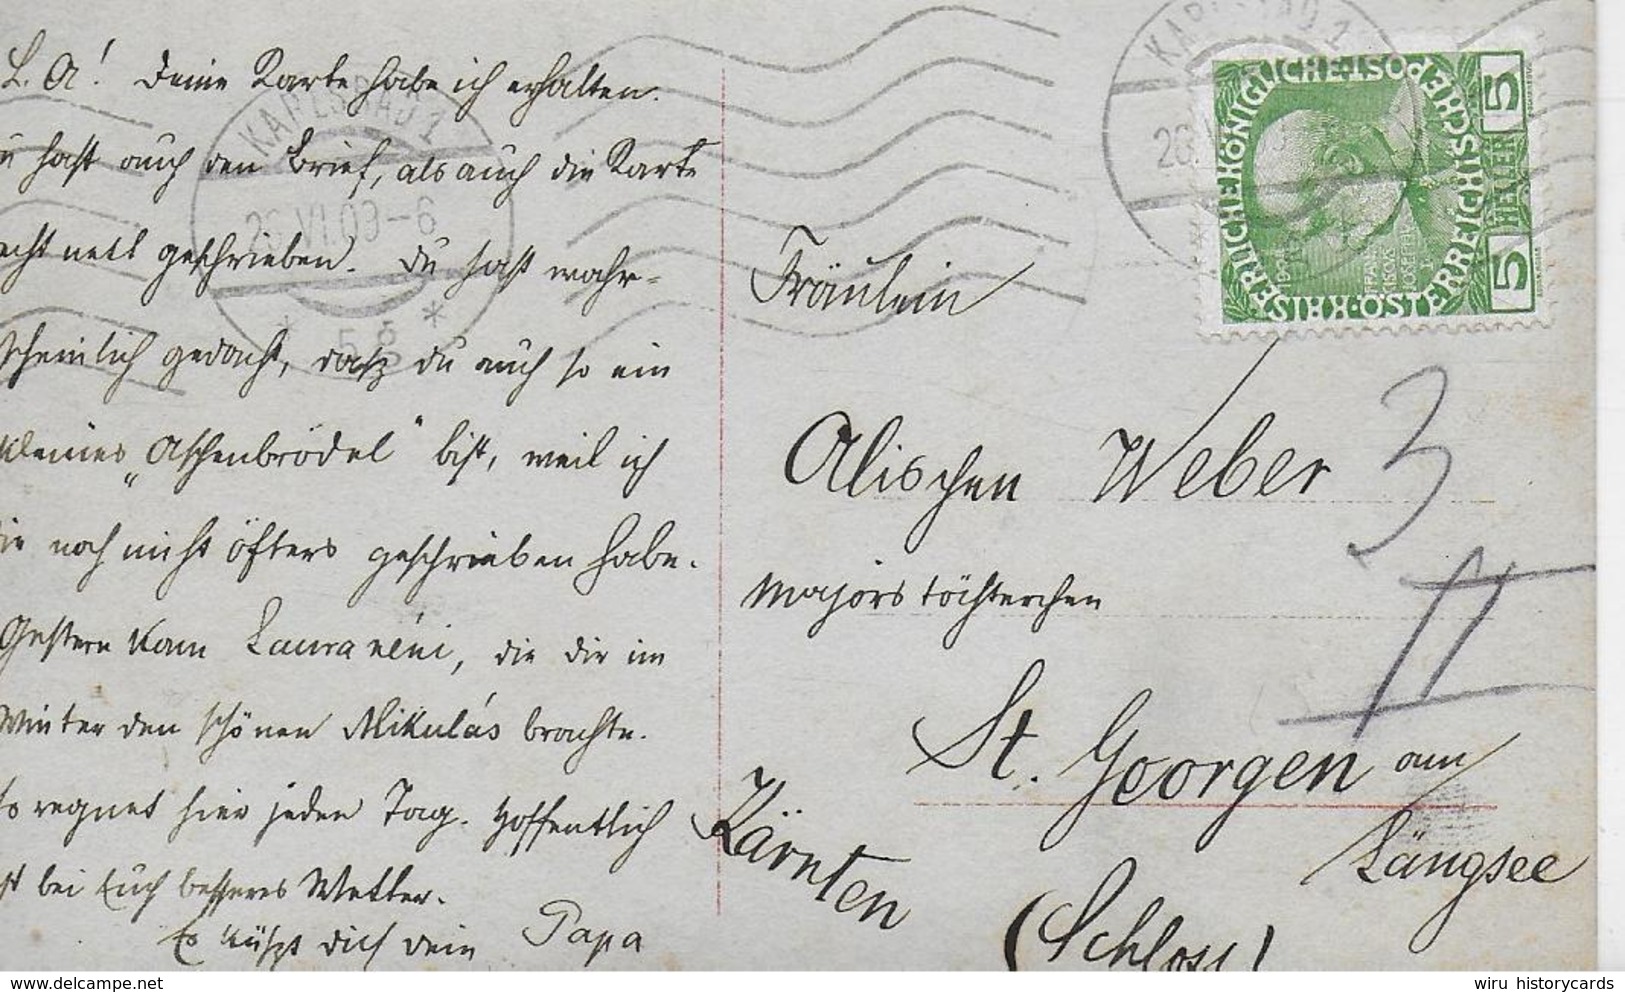 L. A! Deine Karte habe ich erhalten.
hast auch den Brief, als auch die Karte
nett geschrieben. Du hast wahr-
scheinlich gedacht, daß du auch so ein
kleines „Aschenbrödel" bist, weil ich
dir noch nicht öfters geschrieben habe.
Gestern kam Laura néni, die dir im
Winter den schönen Mikulás brachte.
Es regnet hier jeden Tag. Hoffentlich
ist bei Euch besseres Wetter.
Es küßt dich dein Papa
KARLSBAD 1
26.VI.09-6
* 5 8 *
KARLSBAD 1
KAISERLICHE KÖNIGLICHE ÖSTERREICHISCHE POST
5 HELLER 5
Fräulein
Alischen Weber
Majorstöchterchen
St. Georgen am
Längsee
Kärnten
(Schloss)
3
II
wiru historycards